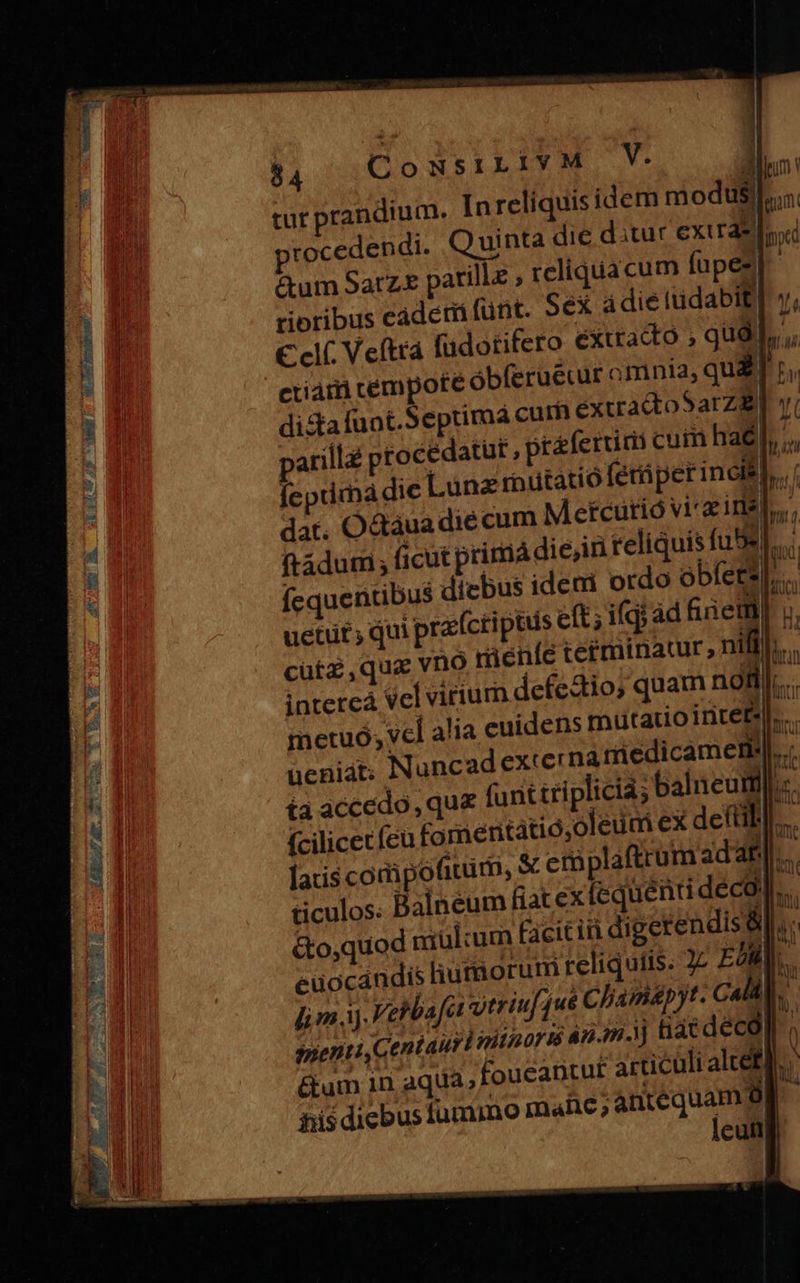 84 CONSILIVM V.
tur prandium. In reliquis idem modus
procedendi. Quinta die datur extra-
ctum Sarzæ parillæ, reliqua cum supe-
rioribus eadem sunt. Sex a die sudabit
Cels. Vestra sudorifero extracto, quo
etiam tempore observetur omnia, quæ
dicta sunt. Septima cum extracto Sarzæ
parillæ procedatur, præsertim cum hac
septima die Lunæ mutatio semper inci-
dat. Octaua die cum Mercurio viæ in-
stādum, sicut prima die, in reliquis subse-
sequentibus diebus idem ordo obser-
uetur, qui præscriptus est, isq; ad finem
curæ, quæ vno mense terminatur, nisi
interea vel virium defectio, quam non
metuo, vel alia euidens mutatio inter-
ueniat. Nunc ad externa medicamen-
ta accedo, quæ sunt triplicia; balneum
scilicet seu fomentatio, oleum ex destil-
latis compositum, & emplastrum ad ar-
ticulos. Balneum fiat ex sequenti deco-
cto, quod multum facit in digerendis &
euocandis humorum reliquiis. ℞. Ebu-
li m.ij. Verbasci vtriusque Chamæpyt. Cala-
menti, Centaurii minoris an. m.ij fiat deco-
ctum in aqua, foueantur articuli alter-
nis diebus summo mane, antequam o-
leum